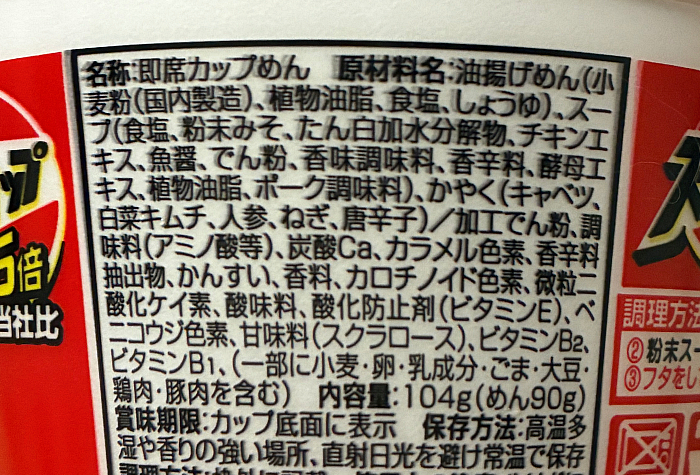 名称:即席カップめん 原材料名:油揚げめん(小
麦粉(国内製造)、植物油脂、食塩、しょうゆ)、スー
プ(食塩、粉末みそ、たん白加水分解物、チキンエ
キス、魚醤、でん粉、香味調味料、香辛料、酵母エ
キス、植物油脂、ポーク調味料)、かやく(キャベツ、
白菜キムチ、人参、ねぎ、唐辛子)/加工でん粉、調
味料(アミノ酸等)、炭酸Ca、カラメル色素、香辛料
抽出物、かんすい、香料、カロチノイド色素、微粒二
酸化ケイ素、酸味料、酸化防止剤(ビタミンE)、ベ
ニコウジ色素、甘味料(スクラロース)、ビタミンB2、
ビタミンB1、(一部に小麦・卵・乳成分・ごま・大豆・
鶏肉・豚肉を含む) 内容量:104g(めん90g)
賞味期限:カップ底面に表示 保存方法:高温多
湿や香りの強い場所、直射日光を避け常温で保存
ップ
5倍
当社比
調理方法
②粉末スー
③フタをし